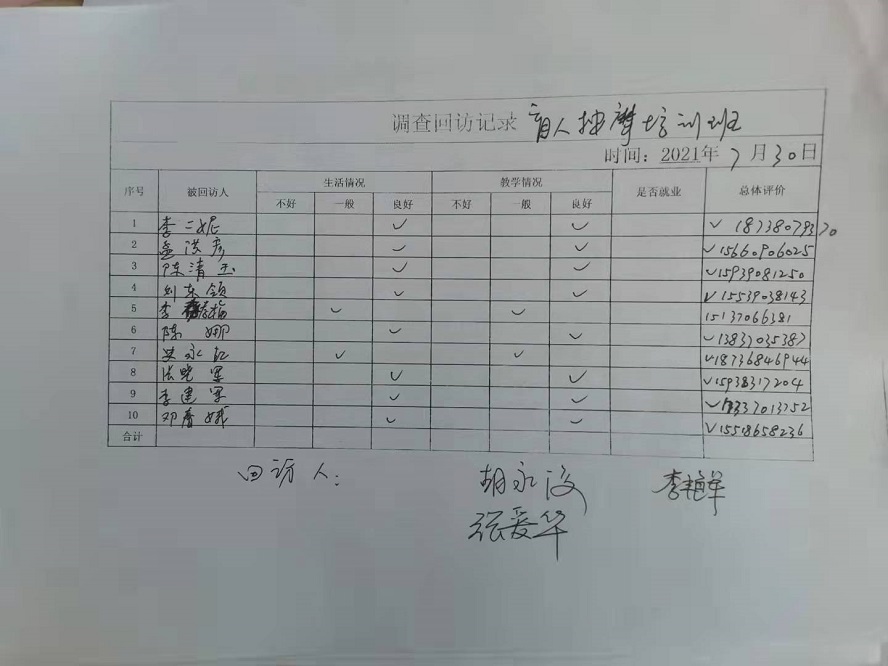 调查回访记录 盲人按摩培训班
时间：2021年7月30日
序号 被回访人 生活情况 教学情况 是否就业 总体评价
不好 一般 良好 不好 一般 良好
1 李二妮 ✓ ✓ ✓ 18738079370
2 孟洪彦 ✓ ✓ ✓15660906025
3 陈清玉 ✓ ✓ ✓15939081250
4 刘东领 ✓ ✓ ✓15539038143
5 李 梅 ✓ ✓ 15137066381
6 陈娜 ✓ ✓ ✓13837035387
7 史永红 ✓ ✓ ✓18736846944
8 张晓军 ✓ ✓ ✓15938317204
9 李建军 ✓ ✓ ✓ 337013752
10 邓香娥 ✓ ✓ ✓15518658236
合计
回访人：
胡永 李艳
张爱华